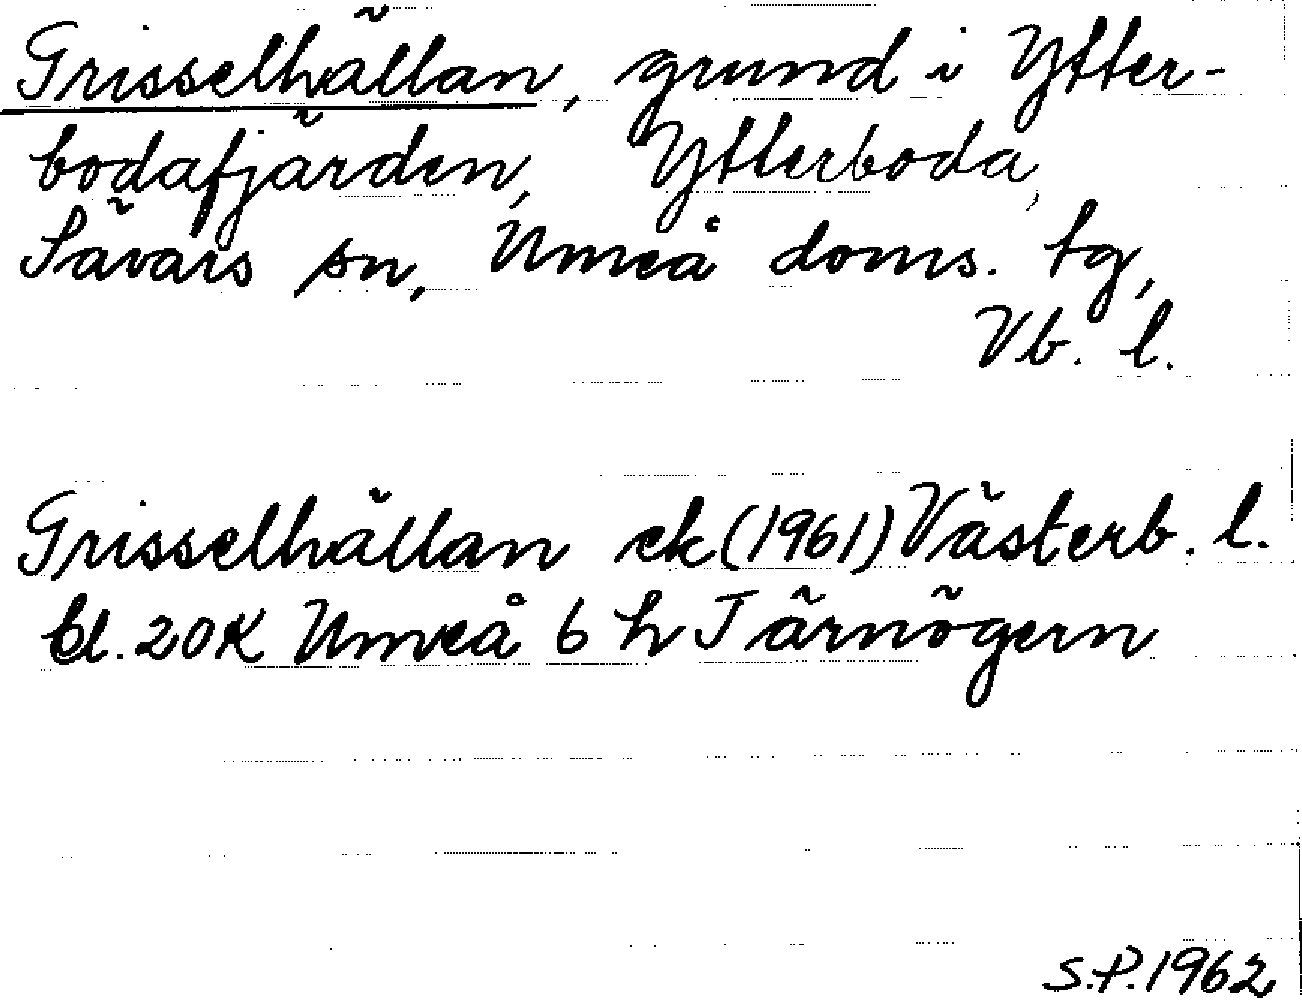 Grisselhällan, grund i Ytter-
bodafjärden, Ytterboda,
Sävars sn, Umeå doms. tg,
Vb. l.
Grisselhällan ek (1961) Västerb. l.
bl. 20K Umeå 6 h Tärnögern
S.P. 1962